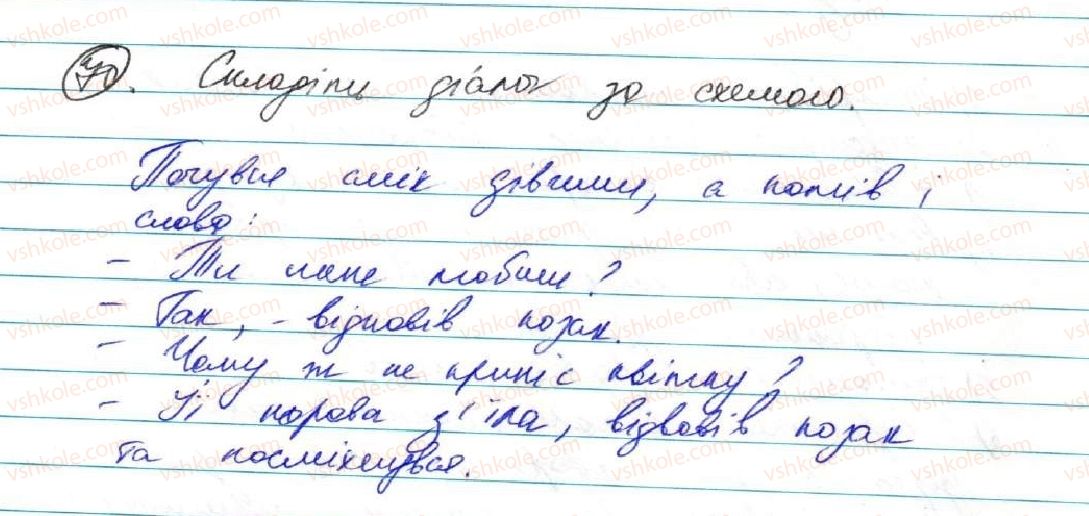 70. Складіть діалог за схемою.
Почувся сміх дівчини, а потім і
слова:
- Ти мене любиш?
- Так, - відповів козак.
- Чому ж не приніс квітку?
- Її корова з'їла, відповів козак
та посміхнувся.